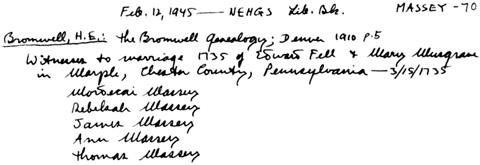 Feb. 12, 1945 — NEHGS Lib. Bk. MASSEY - 70
Bromwell, H.E.: the Bromwell genealogy; Denver 1910 p.5
Witnesses to marriage 1735 of Edward Fell & Mary Musgrave
in Marple, Chester County, Pennsylvania — 3/15/1735
Mordecai Massey
Rebekah Massey
James Massey
Ann Massey
Thomas Massey